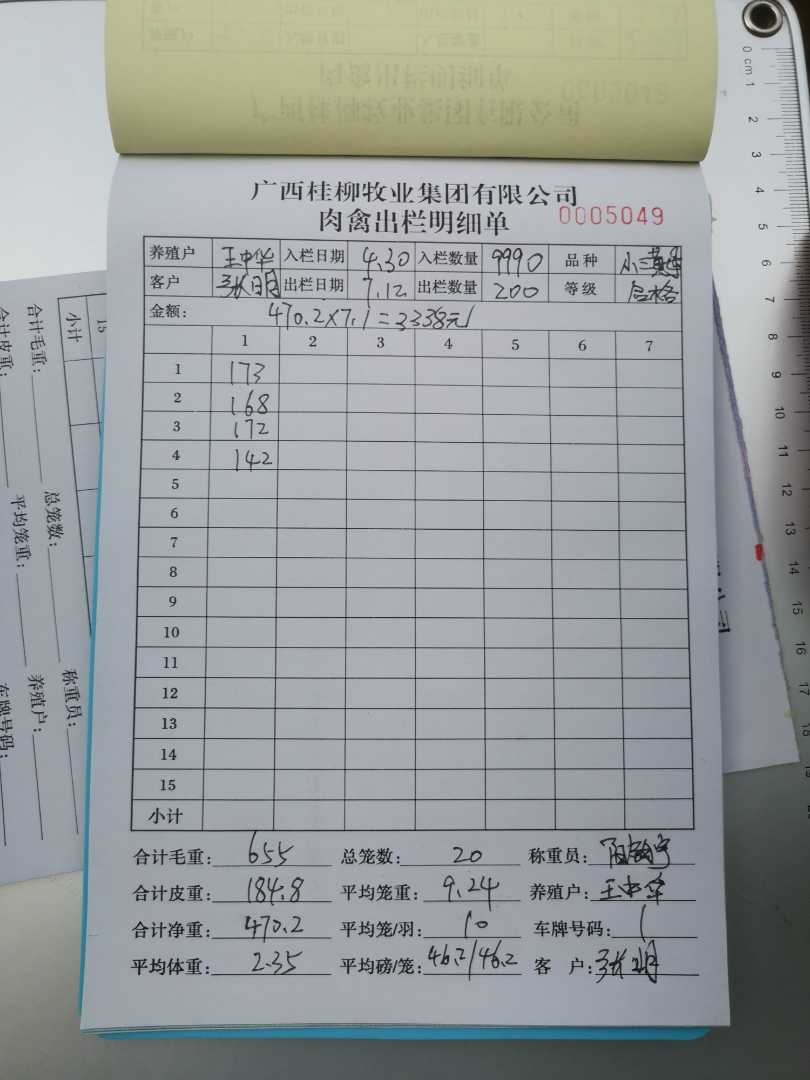 广西桂柳牧业集团有限公司
肉禽出栏明细单 0005049
养殖户 王中华 入栏日期 4.30 入栏数量 9990 品种 小三黄
客户 张明 出栏日期 7.12 出栏数量 200 等级 合格
金额: 470.2×7.1=3338元
1 2 3 4 5 6 7
1 173
2 168
3 172
4 142
5
6
7
8
9
10
11
12
13
14
15
小计
合计毛重: 655 总笼数: 20 称重员:
合计皮重: 184.8 平均笼重: 9.24 养殖户: 王中华
合计净重: 470.2 平均笼/羽: 10 车牌号码: /
平均体重: 2.35 平均磅/笼: 46.2/46.2 客 户: 张明
小计 15
合计毛重: 总笼数: 称重员:
合计皮重: 平均笼重: 养殖户:
车牌号码:
0 cm 1 2 3 4 5 6 7 8 9 10 11 12 13 14 15 16 17 18